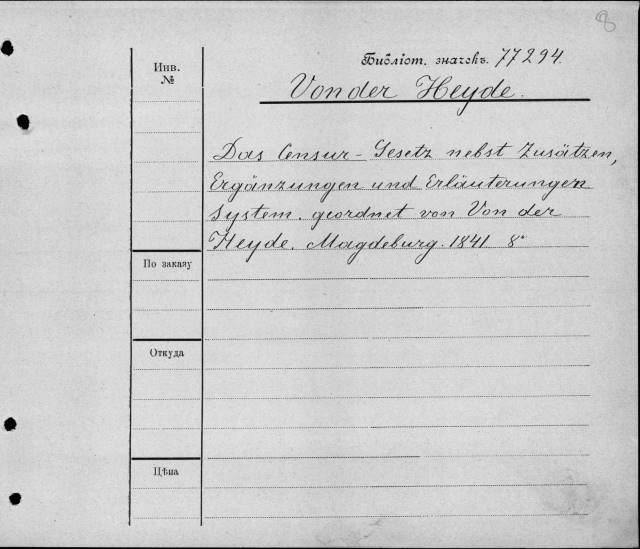 8
Инв.
№
Библіот. значекъ. 77294.
Von der Heyde.
Das Censur-Gesetz nebst Zusätzen,
Ergänzungen und Erläuterungen
system. geordnet von Von der
Heyde. Magdeburg. 1841 8°
По заказу
Откуда
Цѣна